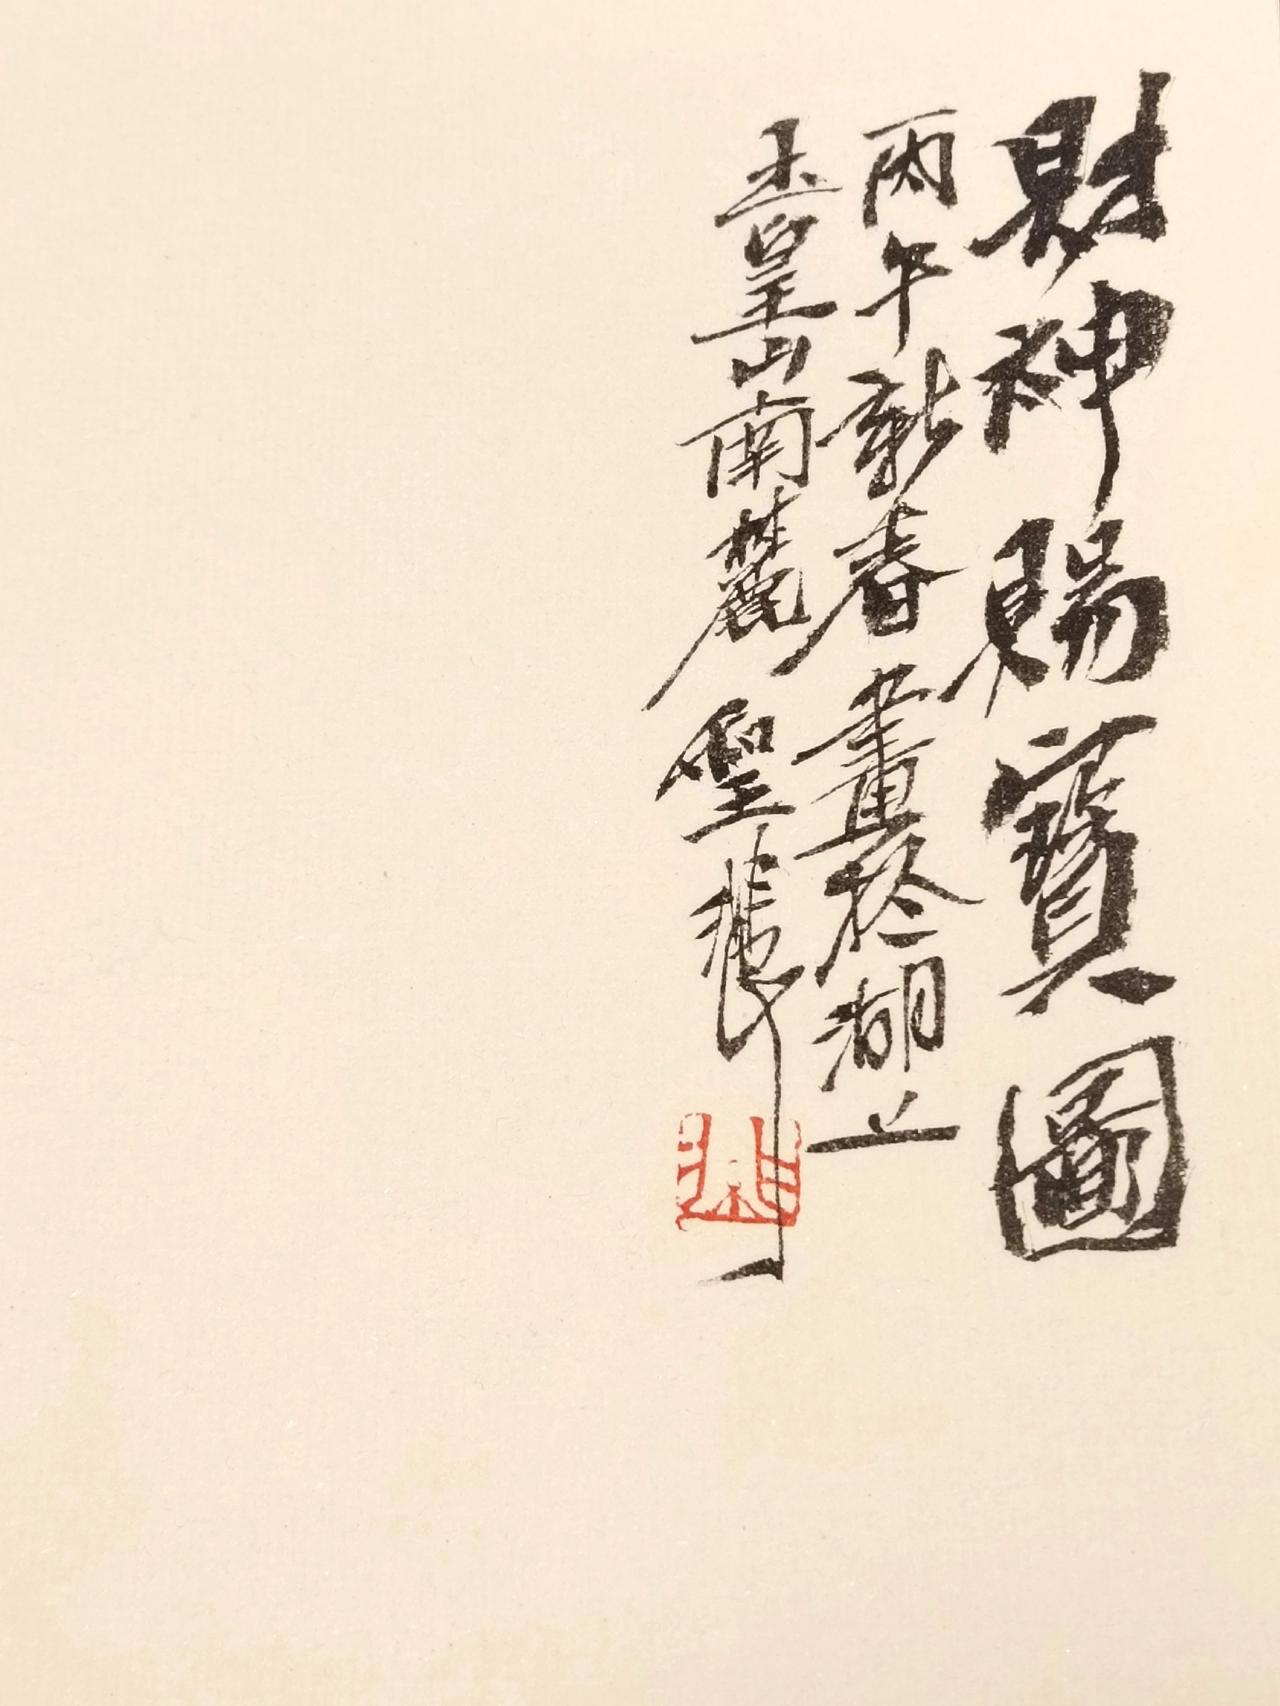 財神賜寶圖
丙午新春畫於湖上
玉皇山南麓聖